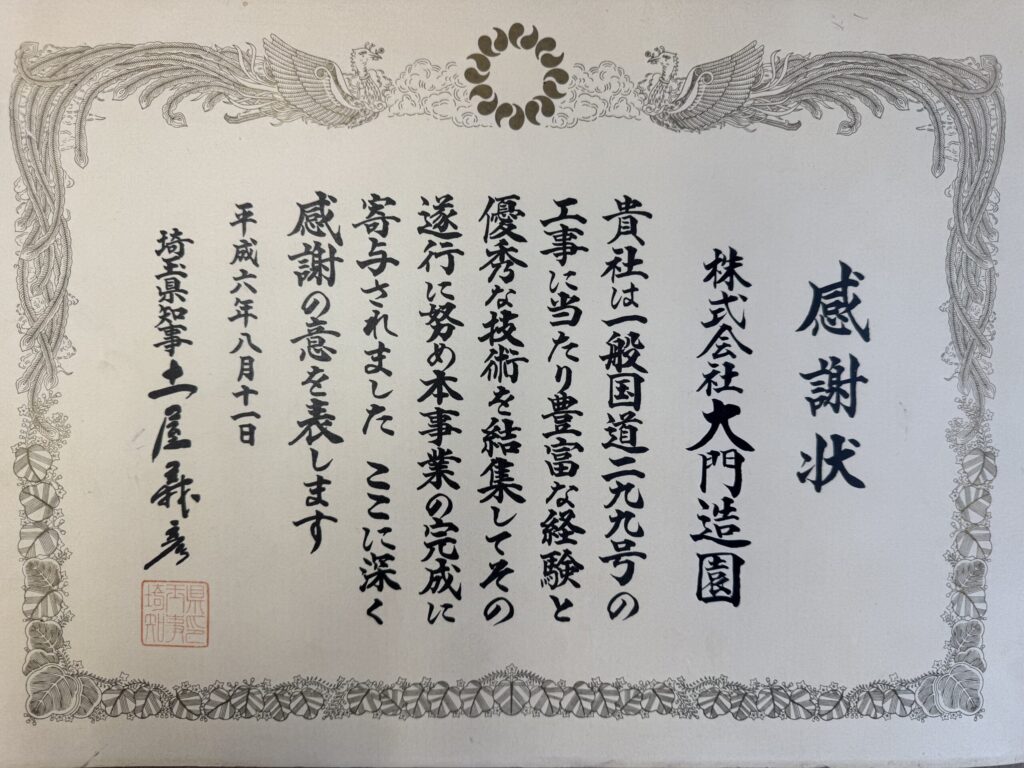 感謝状
株式会社大門造園
貴社は一般国道二九九号の
工事に当たり豊富な経験と
優秀な技術を結集してその
遂行に努め本事業の完成に
寄与されました ここに深く
感謝の意を表します
平成六年八月十一日
埼玉県知事 土屋義彦